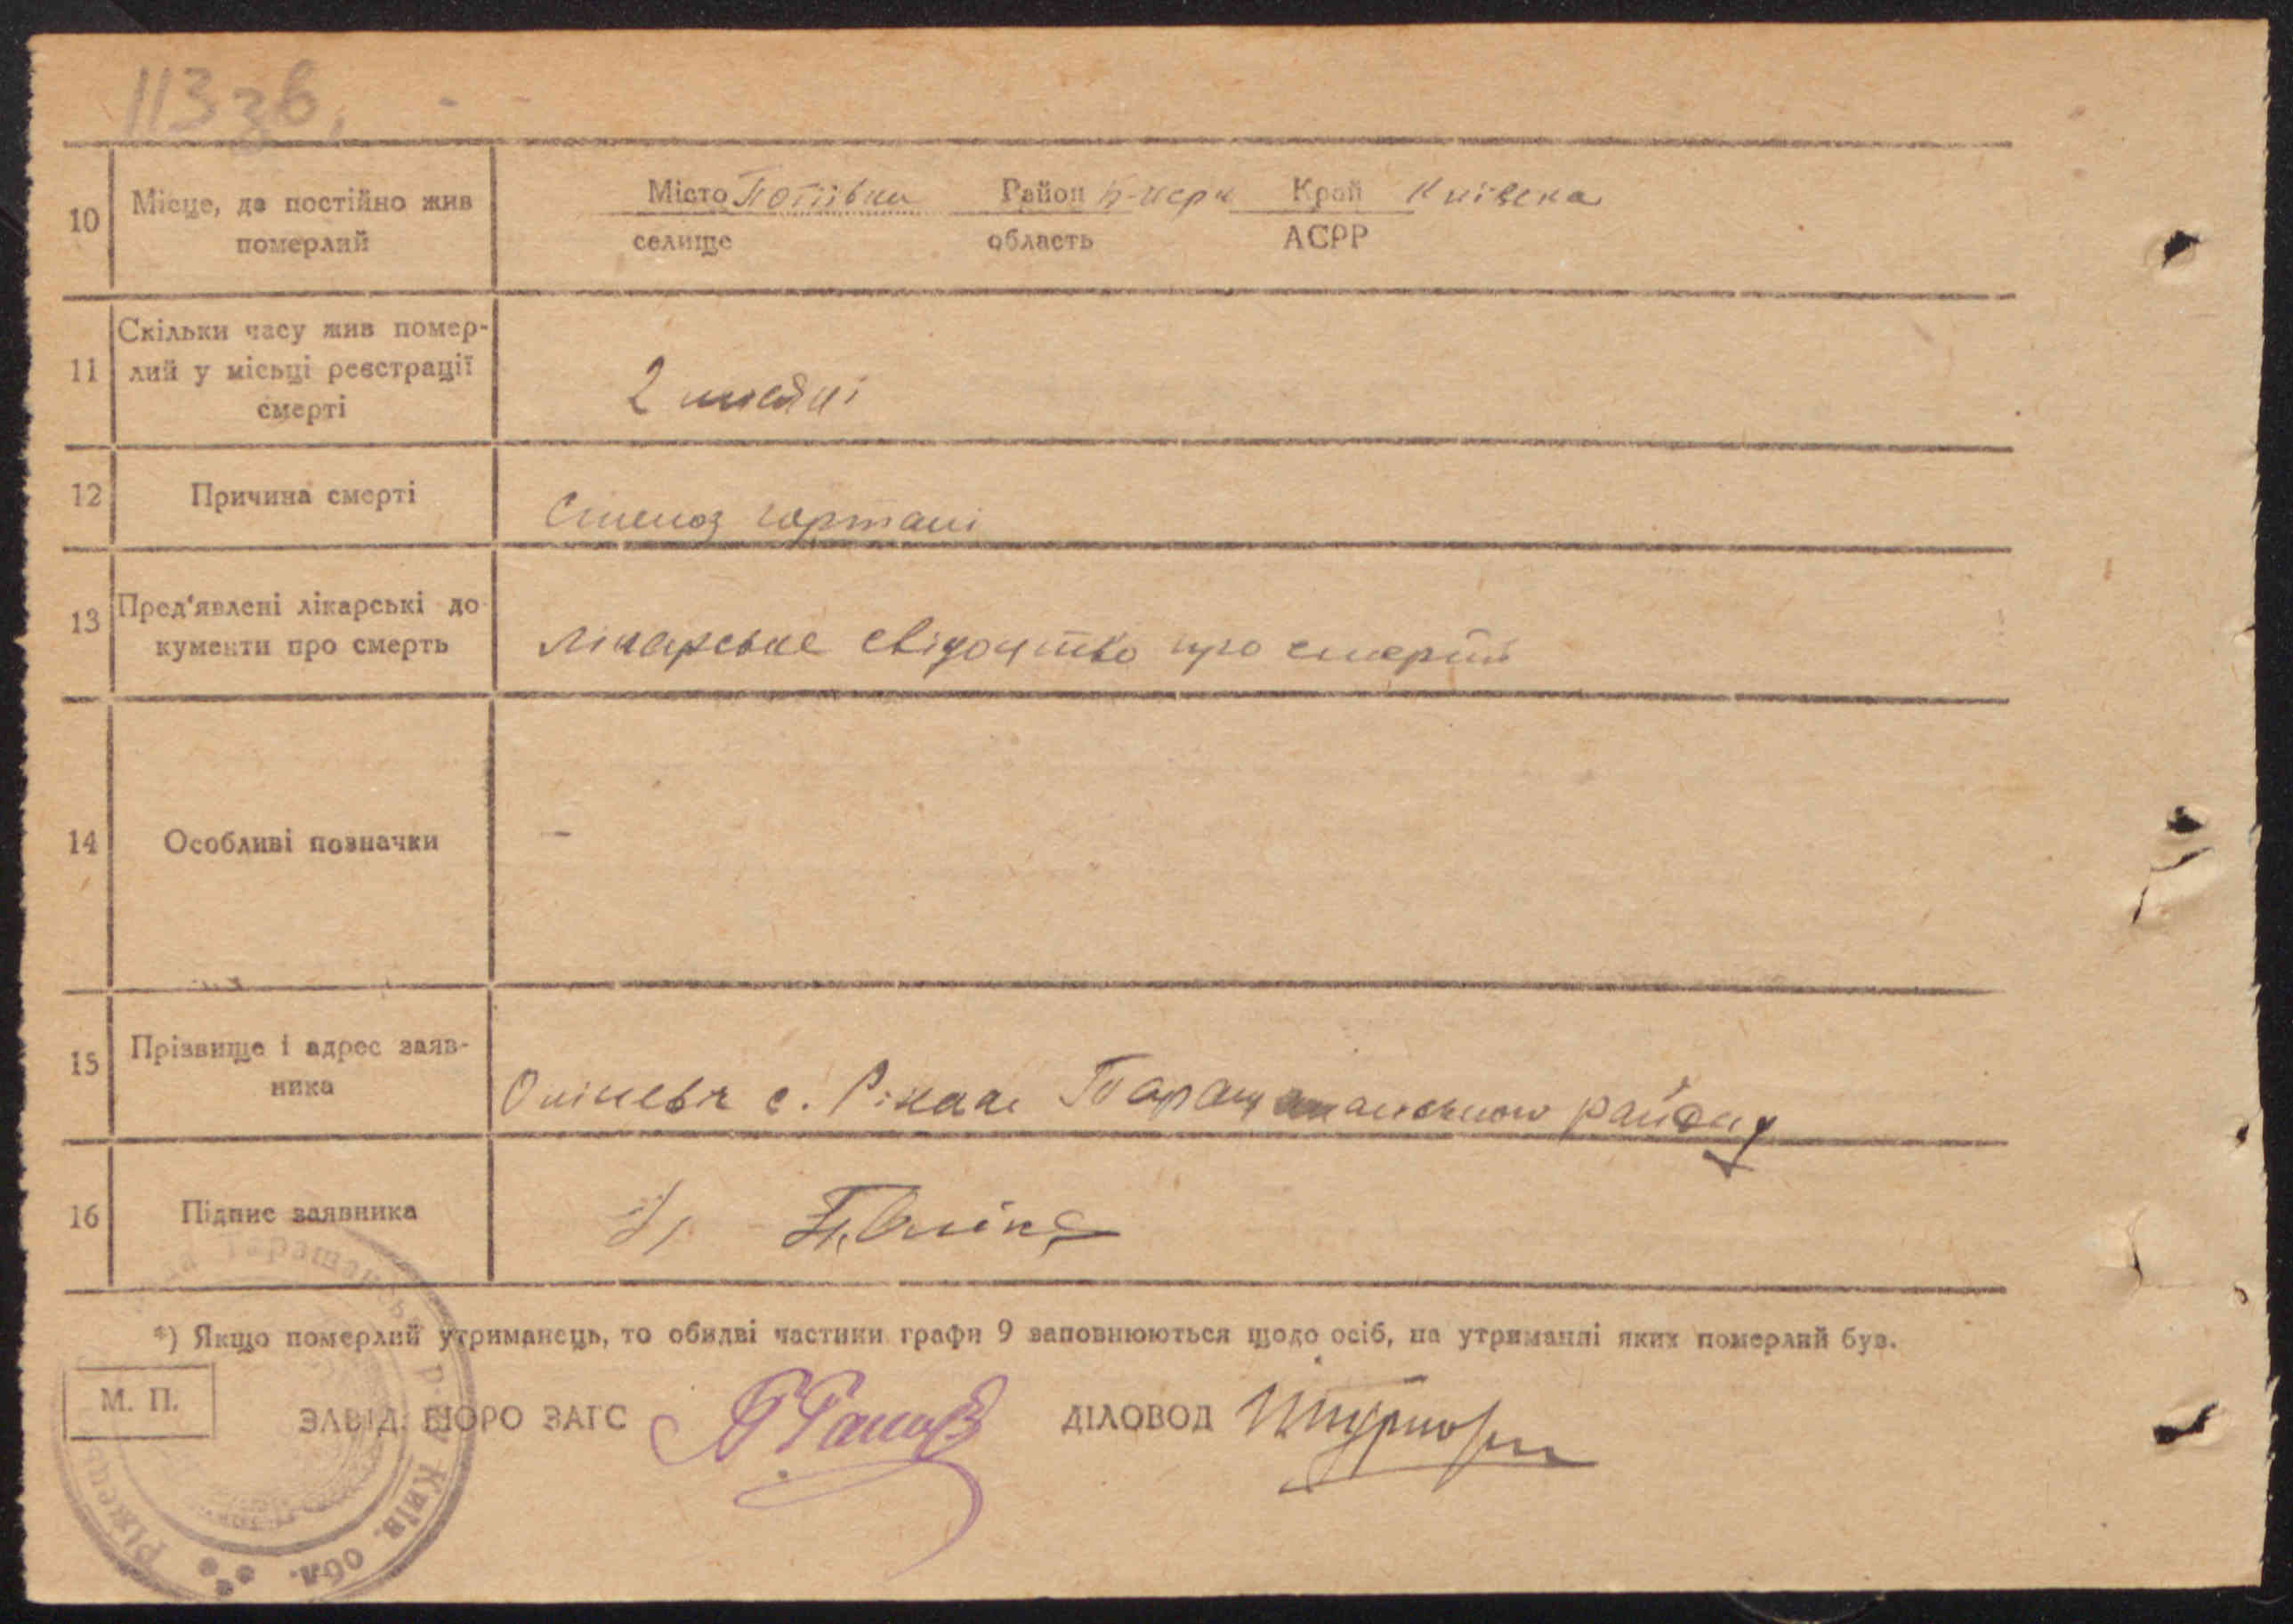 113 зв.
10 Місце, де постійно жив померлий
Місто Потіївка Район Б-Церк Край Київська
селище область АСРР
11 Скільки часу жив помер-
лий у місьці реєстрації
смерті
2 тиждні
12 Причина смерті
Стеноз гортані
13 Пред'явлені лікарські до-
кументи про смерть
Лікарське свідоцтво про смерть
14 Особливі позначки
–
15 Прізвище і адрес заяв-
ника
с. Ріжки Таращанського району
16 Підпис заявника
*) Якщо померлий утриманець, то обидві частини графи 9 заповнюються щодо осіб, на утриманні яких померлий був.
М. П.
ЗАВІД. БЮРО ЗАГС ДІЛОВОД
р-на Київ. обл.